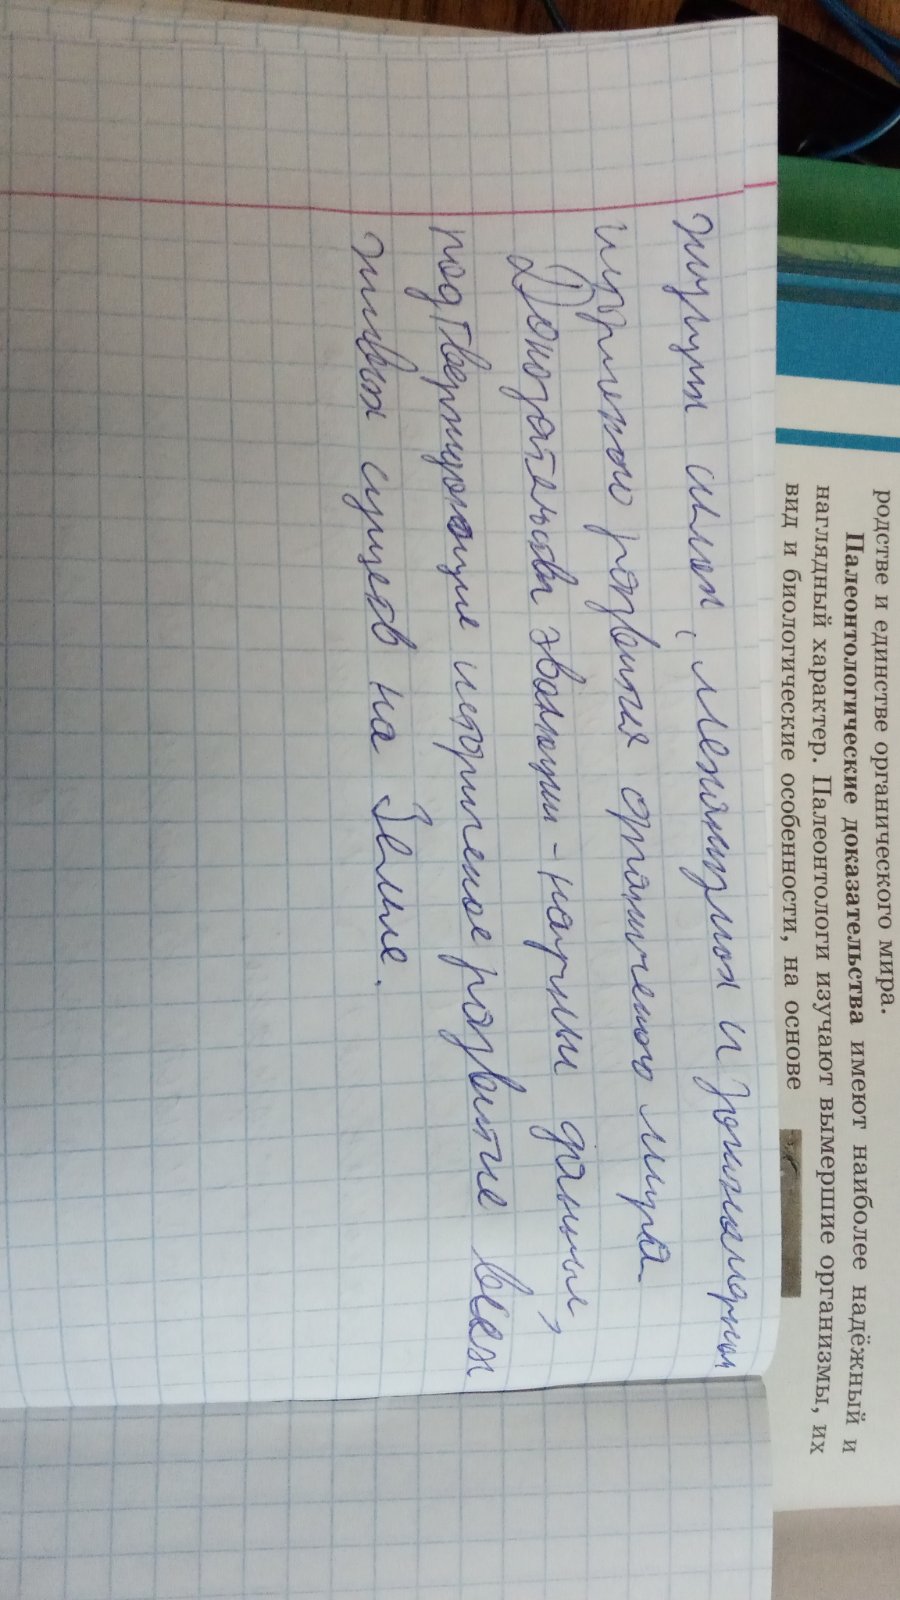 родстве и единстве органического мира.
Палеонтологические доказательства имеют наиболее надёжный и
наглядный характер. Палеонтологи изучают вымершие организмы, их
вид и биологические особенности, на основе
жущих силах, механизмах и
исторического развития органического мира
Доказательства эволюции - научные данные,
подтверждающие историческое развитие всех
живых существ на Земле.